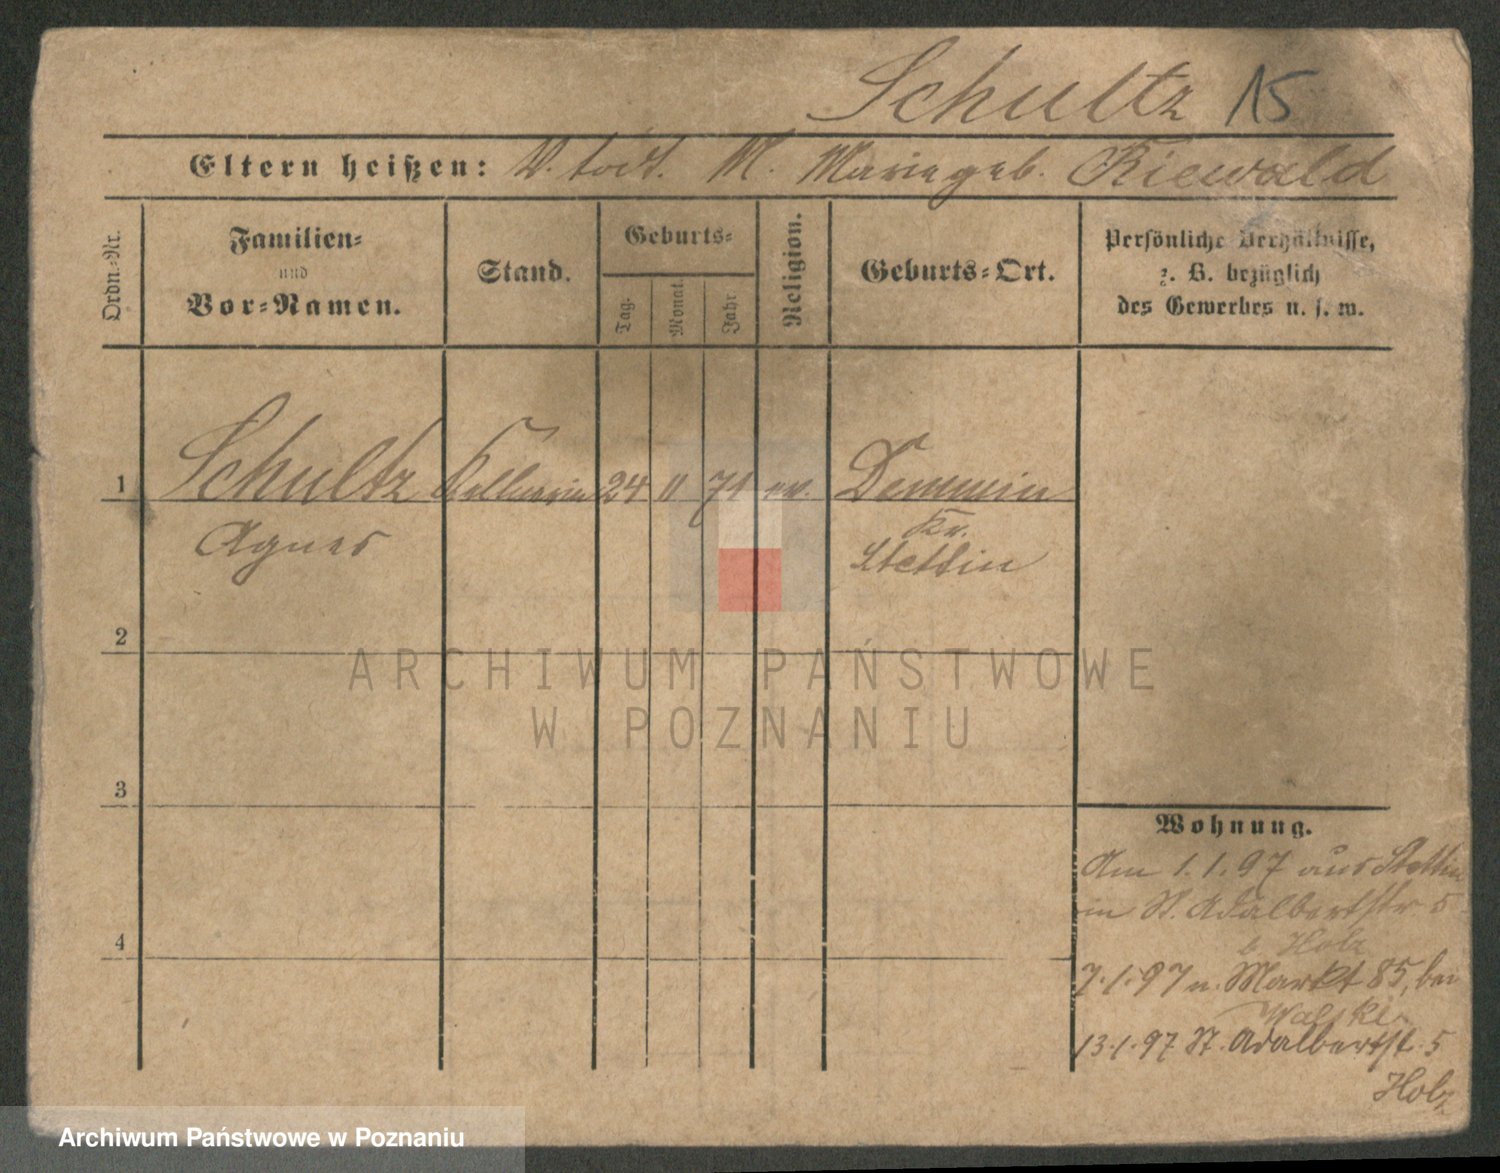 Schultz 15
Eltern heißen: V. tot. M. Marie geb. Kiewald
Ordn.-Nr.
Familien-
und
Vor-Namen.
Stand.
Geburts-
Tag.
Monat.
Jahr
Religion.
Geburts-Ort.
Persönliche Verhältnisse,
z. B. bezüglich
des Gewerbes u. s. w.
1 Schultz Kellnerin 24 11 71 ev. Demmin
Agnes
Kr.
Stettin
2
3
4
Wohnung.
Am 1.1.97 aus Stettin
in St. Adalbertstr 5
b. Holz
7.1.97 n. Markt 85, bei
13.1.97 St. Adalbertst. 5
Holz
ARCHIWUM PAŃSTWOWE
W POZNANIU
Archiwum Państwowe w Poznaniu